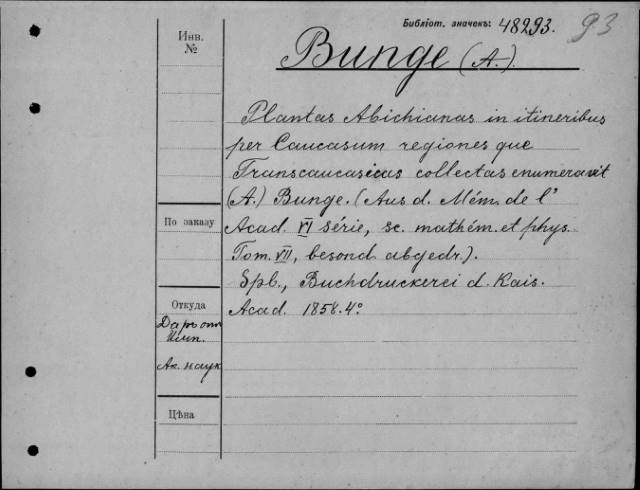 Библіот. значекъ: 48293. 93
Инв.
№
Bunge (A.).
Plantas Abichianas in itineribus
per Caucasum regiones que
Transcaucasicas collectas enumeravit
(A.) Bunge. (Aus d. Mém. de l'
По заказу
Acad. VI série, sc. mathém. et phys.
Tom. VII, besond. abgedr.).
Spb., Buchdruckerei d. Kais.
Откуда
Acad. 1858. 4º
Даръ отъ
Имп.
Ак. наук
Цѣна